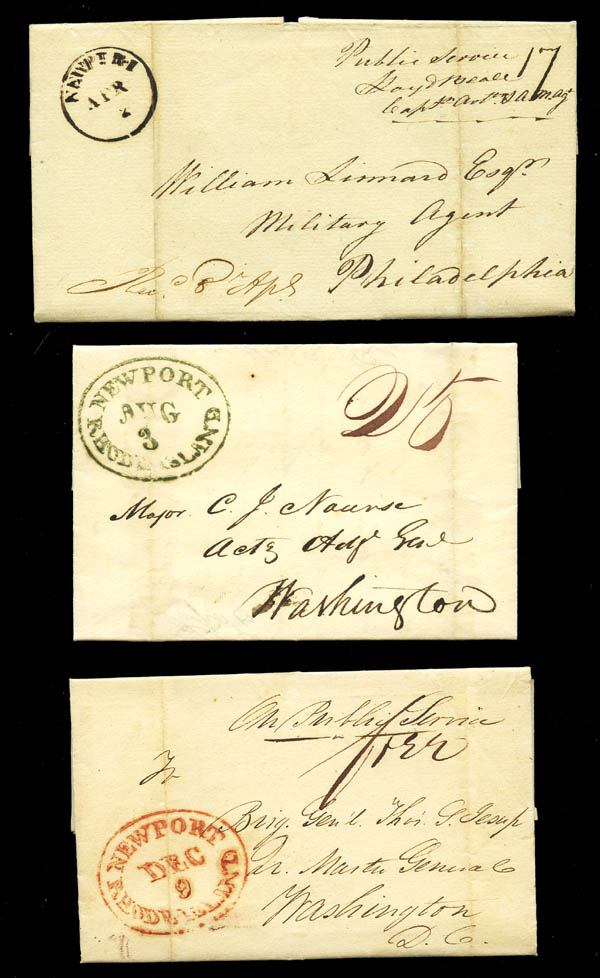 NEWPORT
APR
2
Public Service 17
Lloyd Beall
Captn Artr & a. m. ag
William Linnard Esqr.
Military Agent
Recd 8 Apl Philadelphia
NEWPORT
AUG
3
RHODE ISLAND
D 5
Major C. J. Nourse
Actg Adjt Genl
Washington
On Public Service
Free
To
Brig. Gen'l. Thos. S. Jesup
Qr. Master General
Washington
D. C.
NEWPORT
DEC
9
RHODE ISLAND